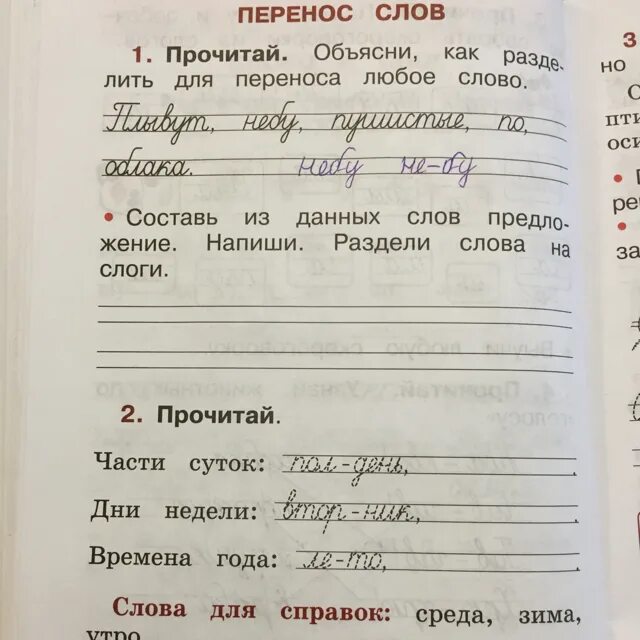 ПЕРЕНОС СЛОВ
1. Прочитай. Объясни, как разде-
лить для переноса любое слово.
Плывут, небу, пушистые, по,
облака. небу не-бу
• Составь из данных слов предло-
жение. Напиши. Раздели слова на
слоги.
2. Прочитай.
Части суток: пол-день,
Дни недели: втор-ник,
Времена года: ле-то,
Слова для справок: среда, зима,
утро